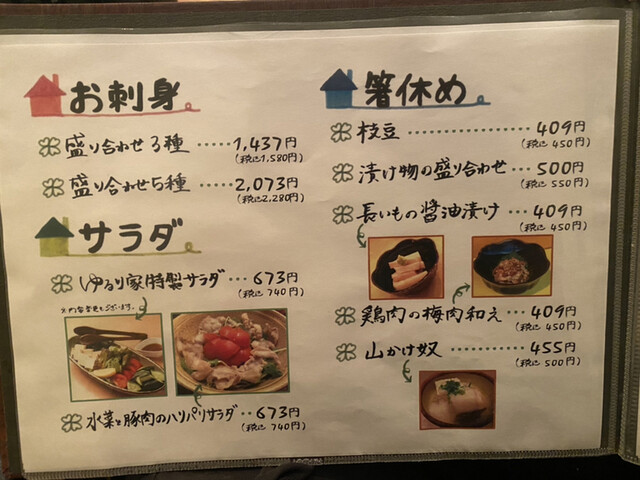 お刺身
盛り合わせ3種 ・・・・・ 1,437円
(税込1,580円)
盛り合わせ5種 ・・・・ 2,073円
(税込2,280円)
サラダ
ゆるり家特製サラダ ・・・ 673円
(税込740円)
水菜と豚肉のハリハリサラダ ・・ 673円
(税込740円)
箸休め
枝豆 ・・・・・・・・・・ 409円
(税込450円)
漬け物の盛り合わせ ・・・ 500円
(税込550円)
長いもの醤油漬け ・・・ 409円
(税込450円)
鶏肉の梅肉和え ・・・ 409円
(税込450円)
山かけ奴 ・・・・・・ 455円
(税込500円)